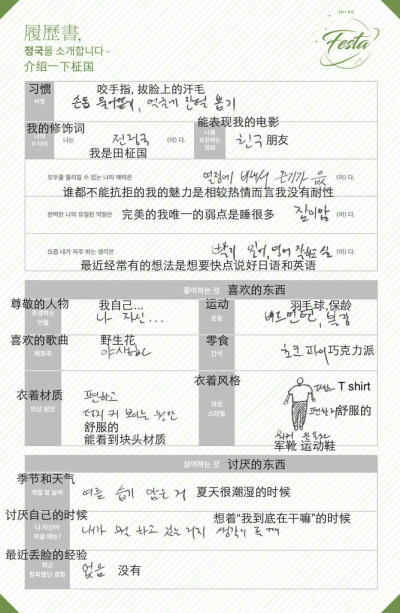 2021 BTS
Festa
履歷書,
정국을 소개합니다 -
介绍一下柾国
习惯 咬手指, 拔脸上的汗毛
버릇 손톱 뜯어먹기, 얼굴에 잔털 뽑기
我的修饰词 能表现我的电影
나의 수식어 나는 전정국 (이)다. 나를 표현하는 영화 친구 朋友
我是田柾国
모두를 홀리칠 수 있는 나의 매력은 열정에 비해서 끈기가 없음 (이)다.
谁都不能抗拒的我的魅力是相较热情而言我没有耐性
완벽한 나의 유일한 약점은 完美的我唯一的弱点是睡很多 잠이 많음 (이)다.
요즘 내가 자주 하는 생각은 빨리 일어, 영어 잘하고 싶 (이)다.
最近经常有的想法是想要快点说好日语和英语
좋아하는 것 喜欢的东西
尊敬的人物 我自己... 运动 羽毛球,保龄
존경하는 인물 나 자신... 운동 배드민턴, 복싱
喜欢的歌曲 野生花 零食
애창곡 야생화 간식 초코파이 巧克力派
衣着材质 衣着风格
의상 원단 편하고 덩치 커 보이는 원단 의상 스타일
T shirt
舒服的 편한 바지 舒服的
能看到块头材质
军靴 运动鞋
싫어하는 것 讨厌的东西
季节和天气
계절 및 날씨 여름 습기 많은 거 夏天很潮湿的时候
讨厌自己的时候 想着“我到底在干嘛”的时候
나 자신이 미울 때는? 내가 뭘 하고 있는 거지 생각이 들 때
最近丢脸的经验
최근 창피했던 경험 없음 没有